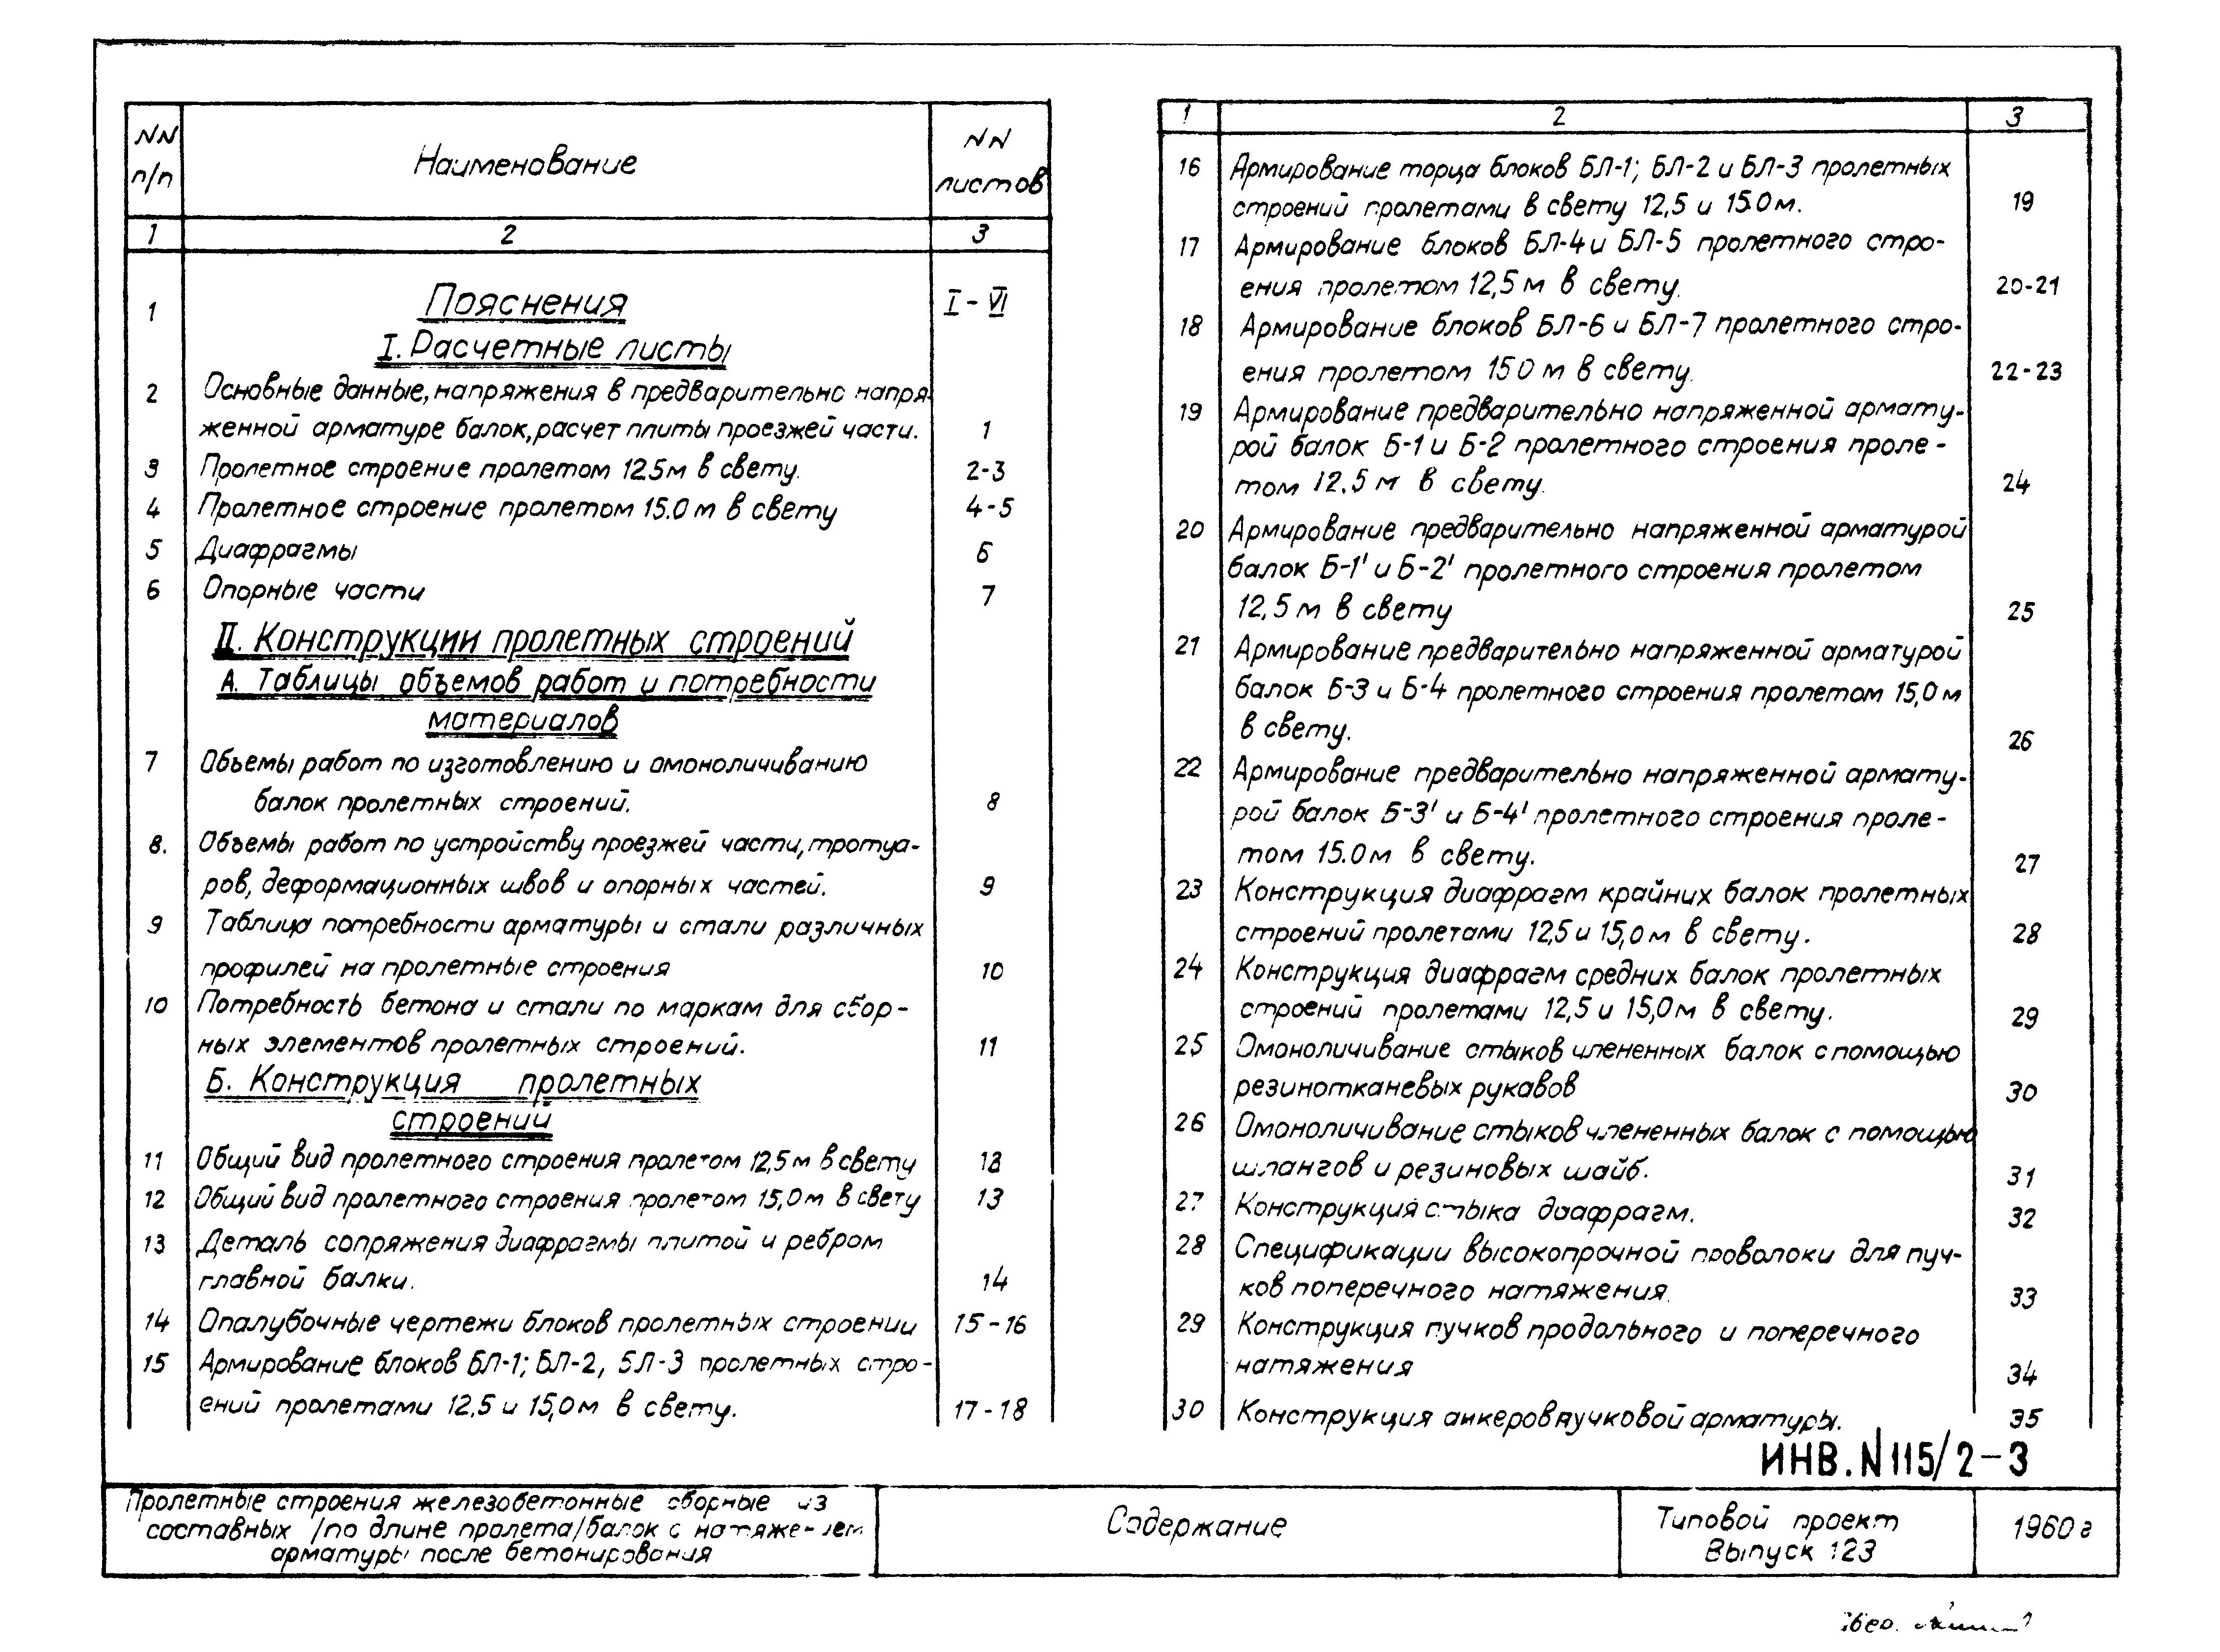 NN п/п Наименование NN листов
1 2 3
1 Пояснения I-VI
I. Расчетные листы
2 Основные данные, напряжения в предварительно напря-
женной арматуре балок, расчет плиты проезжей части. 1
3 Пролетное строение пролетом 12.5м в свету. 2-3
4 Пролетное строение пролетом 15.0 м в свету 4-5
5 Диафрагмы 6
6 Опорные части 7
II. Конструкции пролетных строений
А. Таблицы объемов работ и потребности
материалов
7 Объемы работ по изготовлению и омоноличиванию
балок пролетных строений. 8
8. Объемы работ по устройству проезжей части, тротуа-
ров, деформационных швов и опорных частей. 9
9 Таблица потребности арматуры и стали различных
профилей на пролетные строения 10
10 Потребность бетона и стали по маркам для сбор-
ных элементов пролетных строений. 11
Б. Конструкция пролетных
строений
11 Общий вид пролетного строения пролетом 12,5 м в свету
12 Общий вид пролетного строения пролетом 15,0 м в свету 13
13 Деталь сопряжения диафрагмы плитой и ребром
главной балки. 14
14 Опалубочные чертежи блоков пролетных строении 15-16
15 Армирование блоков БЛ-1; БЛ-2, БЛ-3 пролетных стро-
ений пролетами 12,5 и 15,0 м в свету. 17-18
1 2 3
16 Армирование торца блоков БЛ-1; БЛ-2 и БЛ-3 пролетных
строений пролетами в свету 12,5 и 15.0 м. 19
17 Армирование блоков БЛ-4 и БЛ-5 пролетного стро-
ения пролетом 12,5 м в свету. 20-21
18 Армирование блоков БЛ-6 и БЛ-7 пролетного стро-
ения пролетом 15 0 м в свету. 22-23
19 Армирование предварительно напряженной армату-
рой балок Б-1 и Б-2 пролетного строения проле-
том 12.5 м в свету. 24
20 Армирование предварительно напряженной арматурой
балок Б-1' и Б-2' пролетного строения пролетом
12,5 м в свету 25
21 Армирование предварительно напряженной арматурой
балок Б-3 и Б-4 пролетного строения пролетом 15,0 м
в свету. 26
22 Армирование предварительно напряженной армату-
рой балок Б-3' и Б-4' пролетного строения проле-
том 15.0м в свету. 27
23 Конструкция диафрагм крайних балок пролетных
строений пролетами 12,5 и 15,0 м в свету. 28
24 Конструкция диафрагм средних балок пролетных
строений пролетами 12,5 и 15,0 м в свету. 29
25 Омоноличивание стыков члененных балок с помощью
резинотканевых рукавов 30
26 Омоноличивание стыков члененных балок с помощью
шлангов и резиновых шайб. 31
27 Конструкция стыка диафрагм. 32
28 Спецификации высокопрочной проволоки для пуч-
ков поперечного натяжения. 33
29 Конструкция пучков продольного и поперечного
натяжения 34
30 Конструкция анкеров пучковой арматуры. 35
ИНВ. N 115/2-3
Пролетные строения железобетонные сборные из
составных /по длине пролета/ балок с натяжением
арматуры после бетонирования
Содержание
Типовой проект
Выпуск 123
1960 г